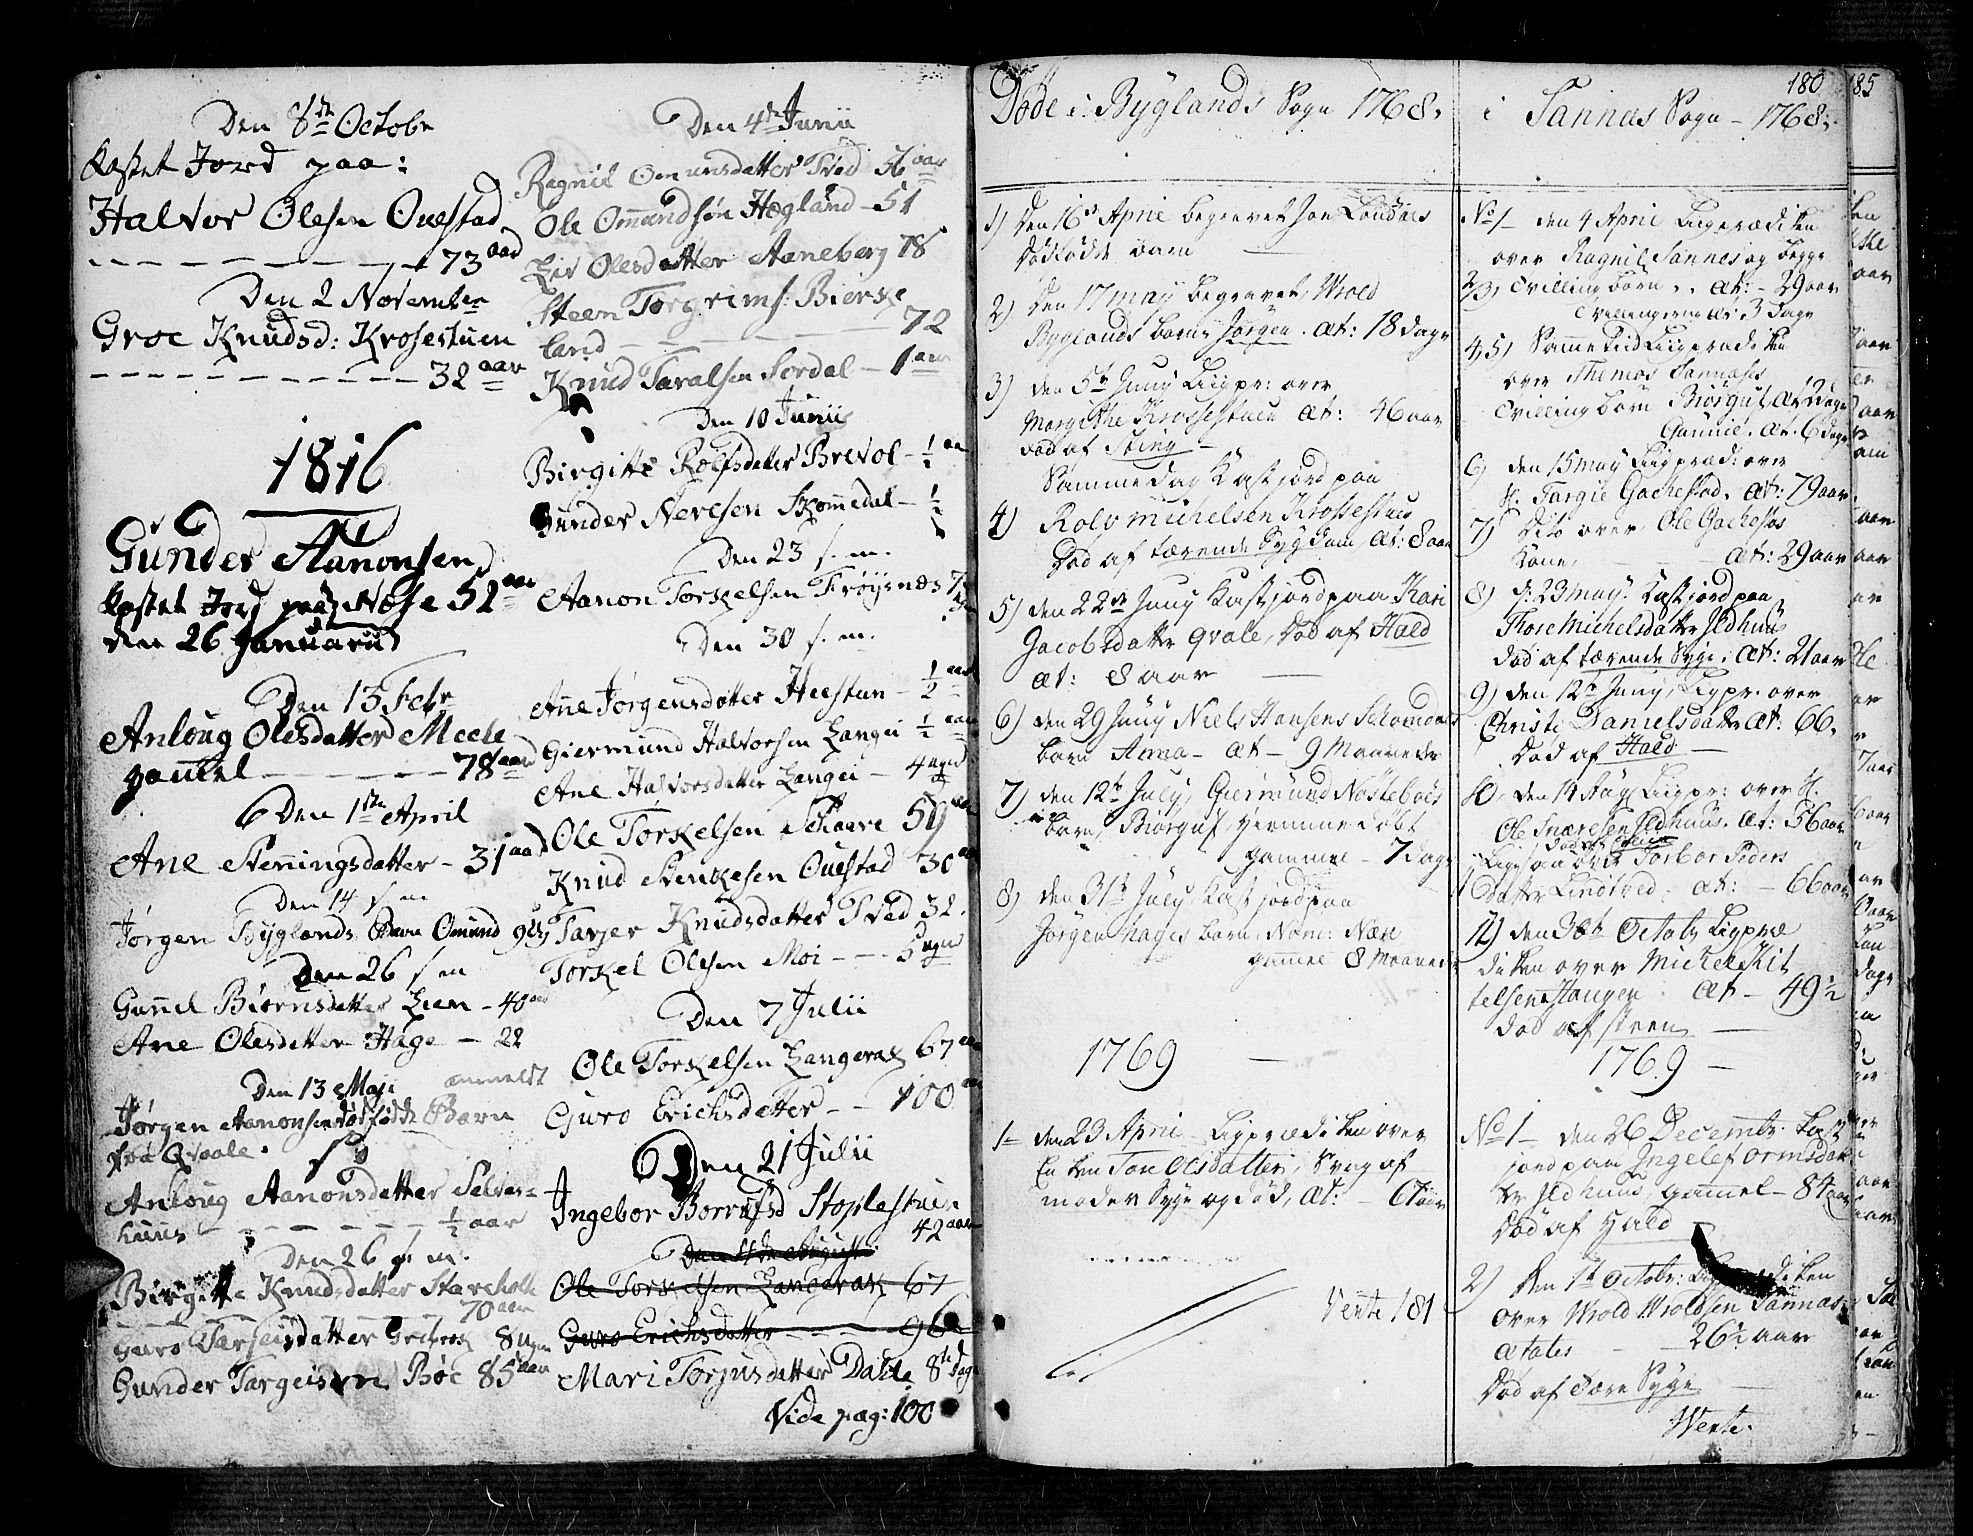 Den 8de Octobr
kastet Jord paa:
Halvor Olesen Ouestad
73 aar
Den 2 November
Groe Knudsd: Krosestuen
32 aar
1816
Gunder Aanonsen
kastet Jord paa, Nese 52 aar
den 26 Januarii
Den 13 Febr
Anloug Olesdatter Meele
gammel 78 aar
Den 1ste April
Ane Stenningsdatter - 31 aar
Den 14 s. m
Jørgen Byglands Barn Omund
Den 26 s m
Gunnil Biørnsdatter Liem - 40 aar
Ane Olesdatter Hage - 22
Den 13 Maji anmeldt
Jørgen Aanonsens dødfødde Barn
fra Qvaale.
Anloug Aanonsdatter Selvers=
huus ½ aar
Den 26 s. m.
Birgitte Knudsdatter
70 aar
Guro Tarjeisdatter 8 ugr
Gunder Targeisen Bøe 85 aar
Den 4de Junii
Ragnil Omunsdatter Tved 56 aar
Ole Omundsøn Hægland - 51
Liv Olesdatter Aaneberg 78
Steen Torgrims: Bierke
land 72
Knud Taralsen Sordal - 1 aar
Den 10 Junii
Birgitte Rolfsdatter Brevol - ½ aar
Gunder Neresen Skomedal - ½
Den 23 s. m.
Aanon Torkelsen Frøysnes 7
Den 30 s. m.
Ane Jørgensdatter Heestun - ½ aar
Giermund Halvorsen Langei ½ aar
Ane Halvorsdatter Langei - 4
Ole Torkelsen Schaare 59 aar
Knud Stenkesen Ouestad 30 aar
Tarjer Knudsdatter Tved 32.
Torkel Olesen Moi - - - 5 uger
Den 7 Julii
Ole Torkelsen Langerak 67 aar
Guro Erichsdatter - - 100 aar
Den 21 Julii
Ingebor Borrufsd Stoplestuen
42 aar
Den Augusti
Ole Torkelsen Langerak 67
Guro Erichsdatter 96
Mari Torjusdatter Dahle 8te Dage
Vide pag: 100
180
185
Døde i Byglands Sogn 1768.
1) Den 16de April begravet Jon Landnes
dødfødde barn
2) Den 17 may begravet, Wrold
Byglands barn Jørgen. æt: 18 dage
3) den 5te Juny Liigpr: over
Margethe Krossestuen æt: 46 aar
død af Sting -
Samme dag Kast jord paa
4) Rolv Michelsen Krossestuen
Død af tærende Sygdom, æt: 8 aar
5) den 22de Juny Kast jord paa Kari
Jacobsdatter Qvale, død af Hald
æt: 8 aar
6) den 29 Juny Niels Hansens Skomdals
barn Anna - æt - 9 Maaneder
7) den 12te July, Giermund Nøstebøes
barn, Biørguf, hiemme døbt
gammel - 7 dage
8) den 31te July, Kast jord paa
Jørgen Hages barn, Nom: Nære
gamel 8 Maaneder
1769
1 - den 23 April Ligprædiken over
Enken Ton Olsdatter, Svag af
moder Syge og død, æt: - 67 aar
Vente 181
i Sannæs Sogn - 1768.
No 1 - den 4 April Liigprædiken
over Ragnil Sannes og begge
2,3) tvilling børn., æt: - 29 aar
tvillingerne æt 3 dage
4,5) Samme tiid Liigprædiken
over Thomas Sannæses
tvilling børn Biørguf, æt 12 dage
Gunnil, æt. 6 dage
6) den 15 may Liigpræd: over
S. Targie Gachestad, æt: 79 aar
7) Dito over, Ole Gachestas
Kone, æt: 29 aar
8) d. 23 may. Kast jord paa
Thore Michelsdatter Ildhuus
død af tærende Syge. æt: 21 aar
9) den 12te Juny, Ligpr. over
Christi Danielsdatter æt: 66.
Død af Hald
10, den 14 Aug Liigpr: over S.
Ole Snæresen Ildhuus. æt: 56 aar
Ligesaa over Torbor Peders
datter Lindtved - æt: - 66 aar
12) den 30te Octobr Ligpræ
diken over Michel Kit
telsen Haugen. æt - 49½
død af steen
1769
No 1 - den 26 Decembr. Kast
jord paa Ingelef Ormsdat
ter Ildhuus, gammel - 84 aar
død af Hald
2) den 1te Octobr: Ligprædiken
over Wrold Wroldsen Sannæs
ætatis 26½ aar
Død af Tære Syge
Vente